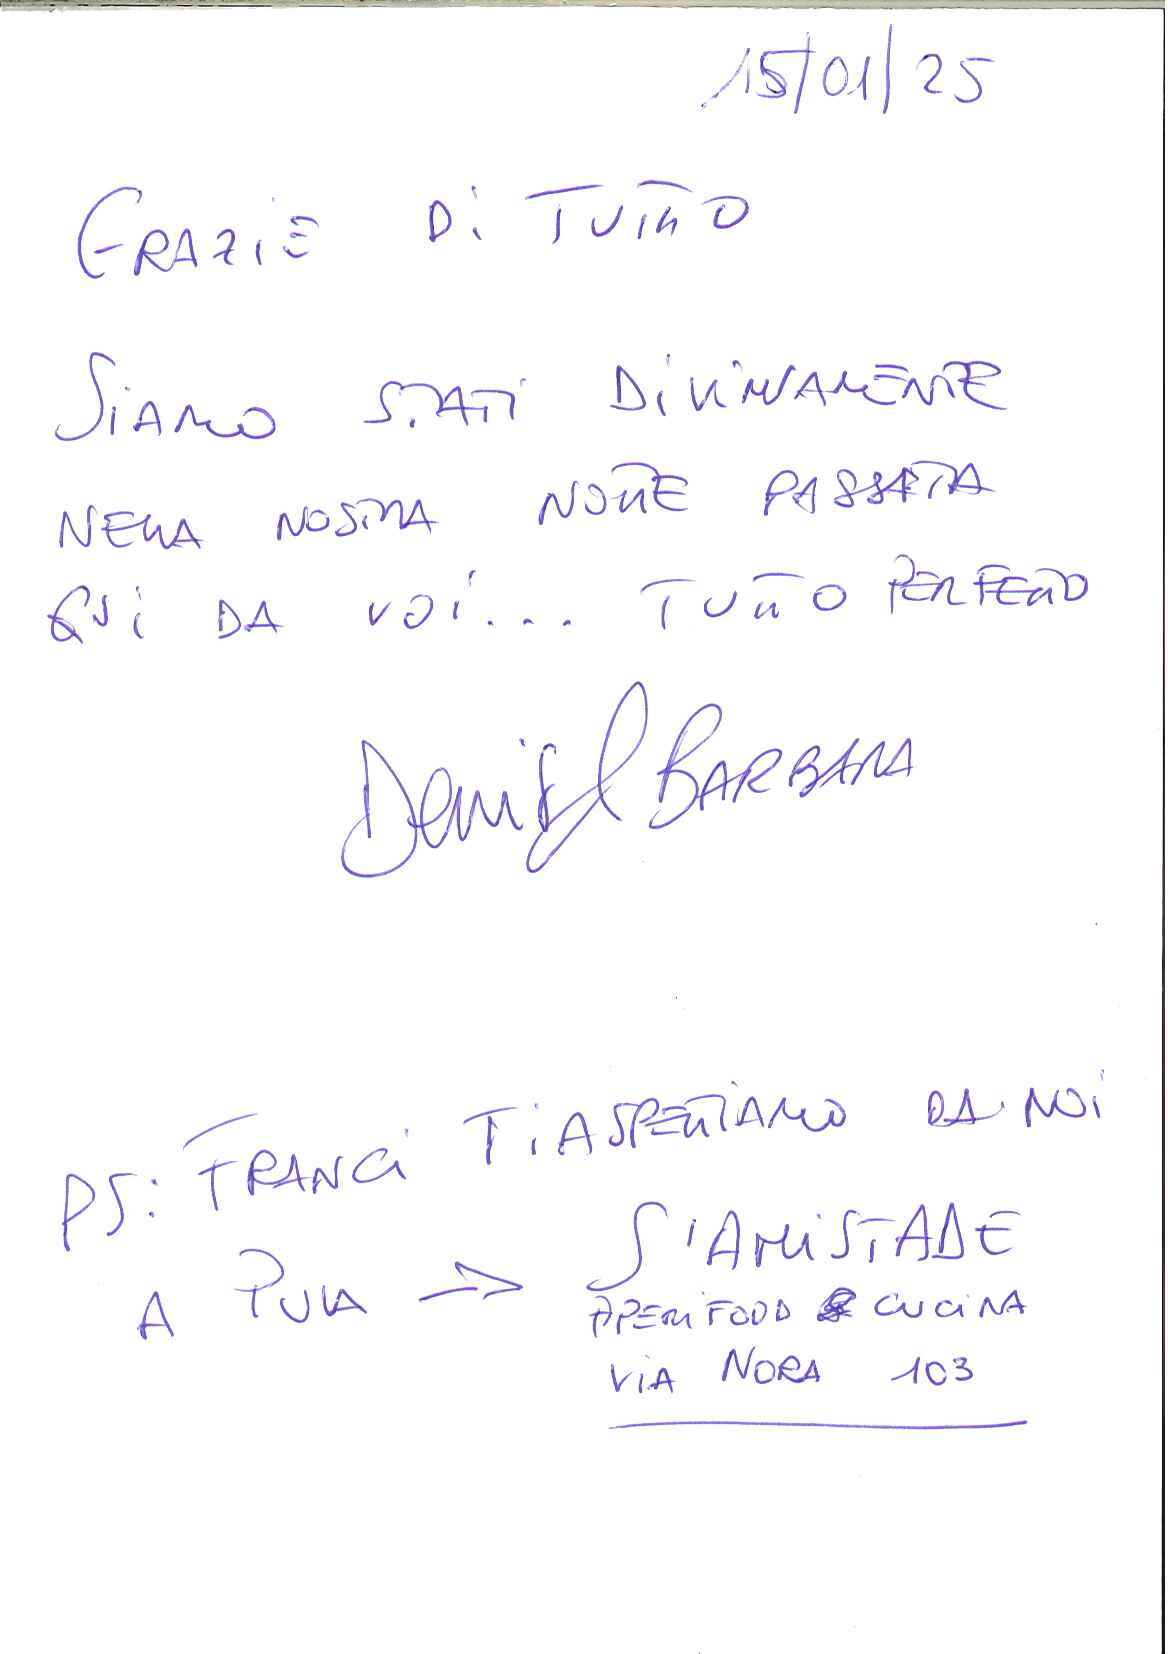 15/01/25
GRAZIE Di TUTTO
SiAMO STATI DiViNAMENTE
NELLA NOSTRA NOTTE PASSATA
QUi DA VOi... TUTTO PERFETTO
Denis & BARBARA
PS: FRANCi Ti ASPETTiAMO DA NOi
A PULA → S'AMiSTADE
APERiFOOD & CUCiNA
ViA NORA 103